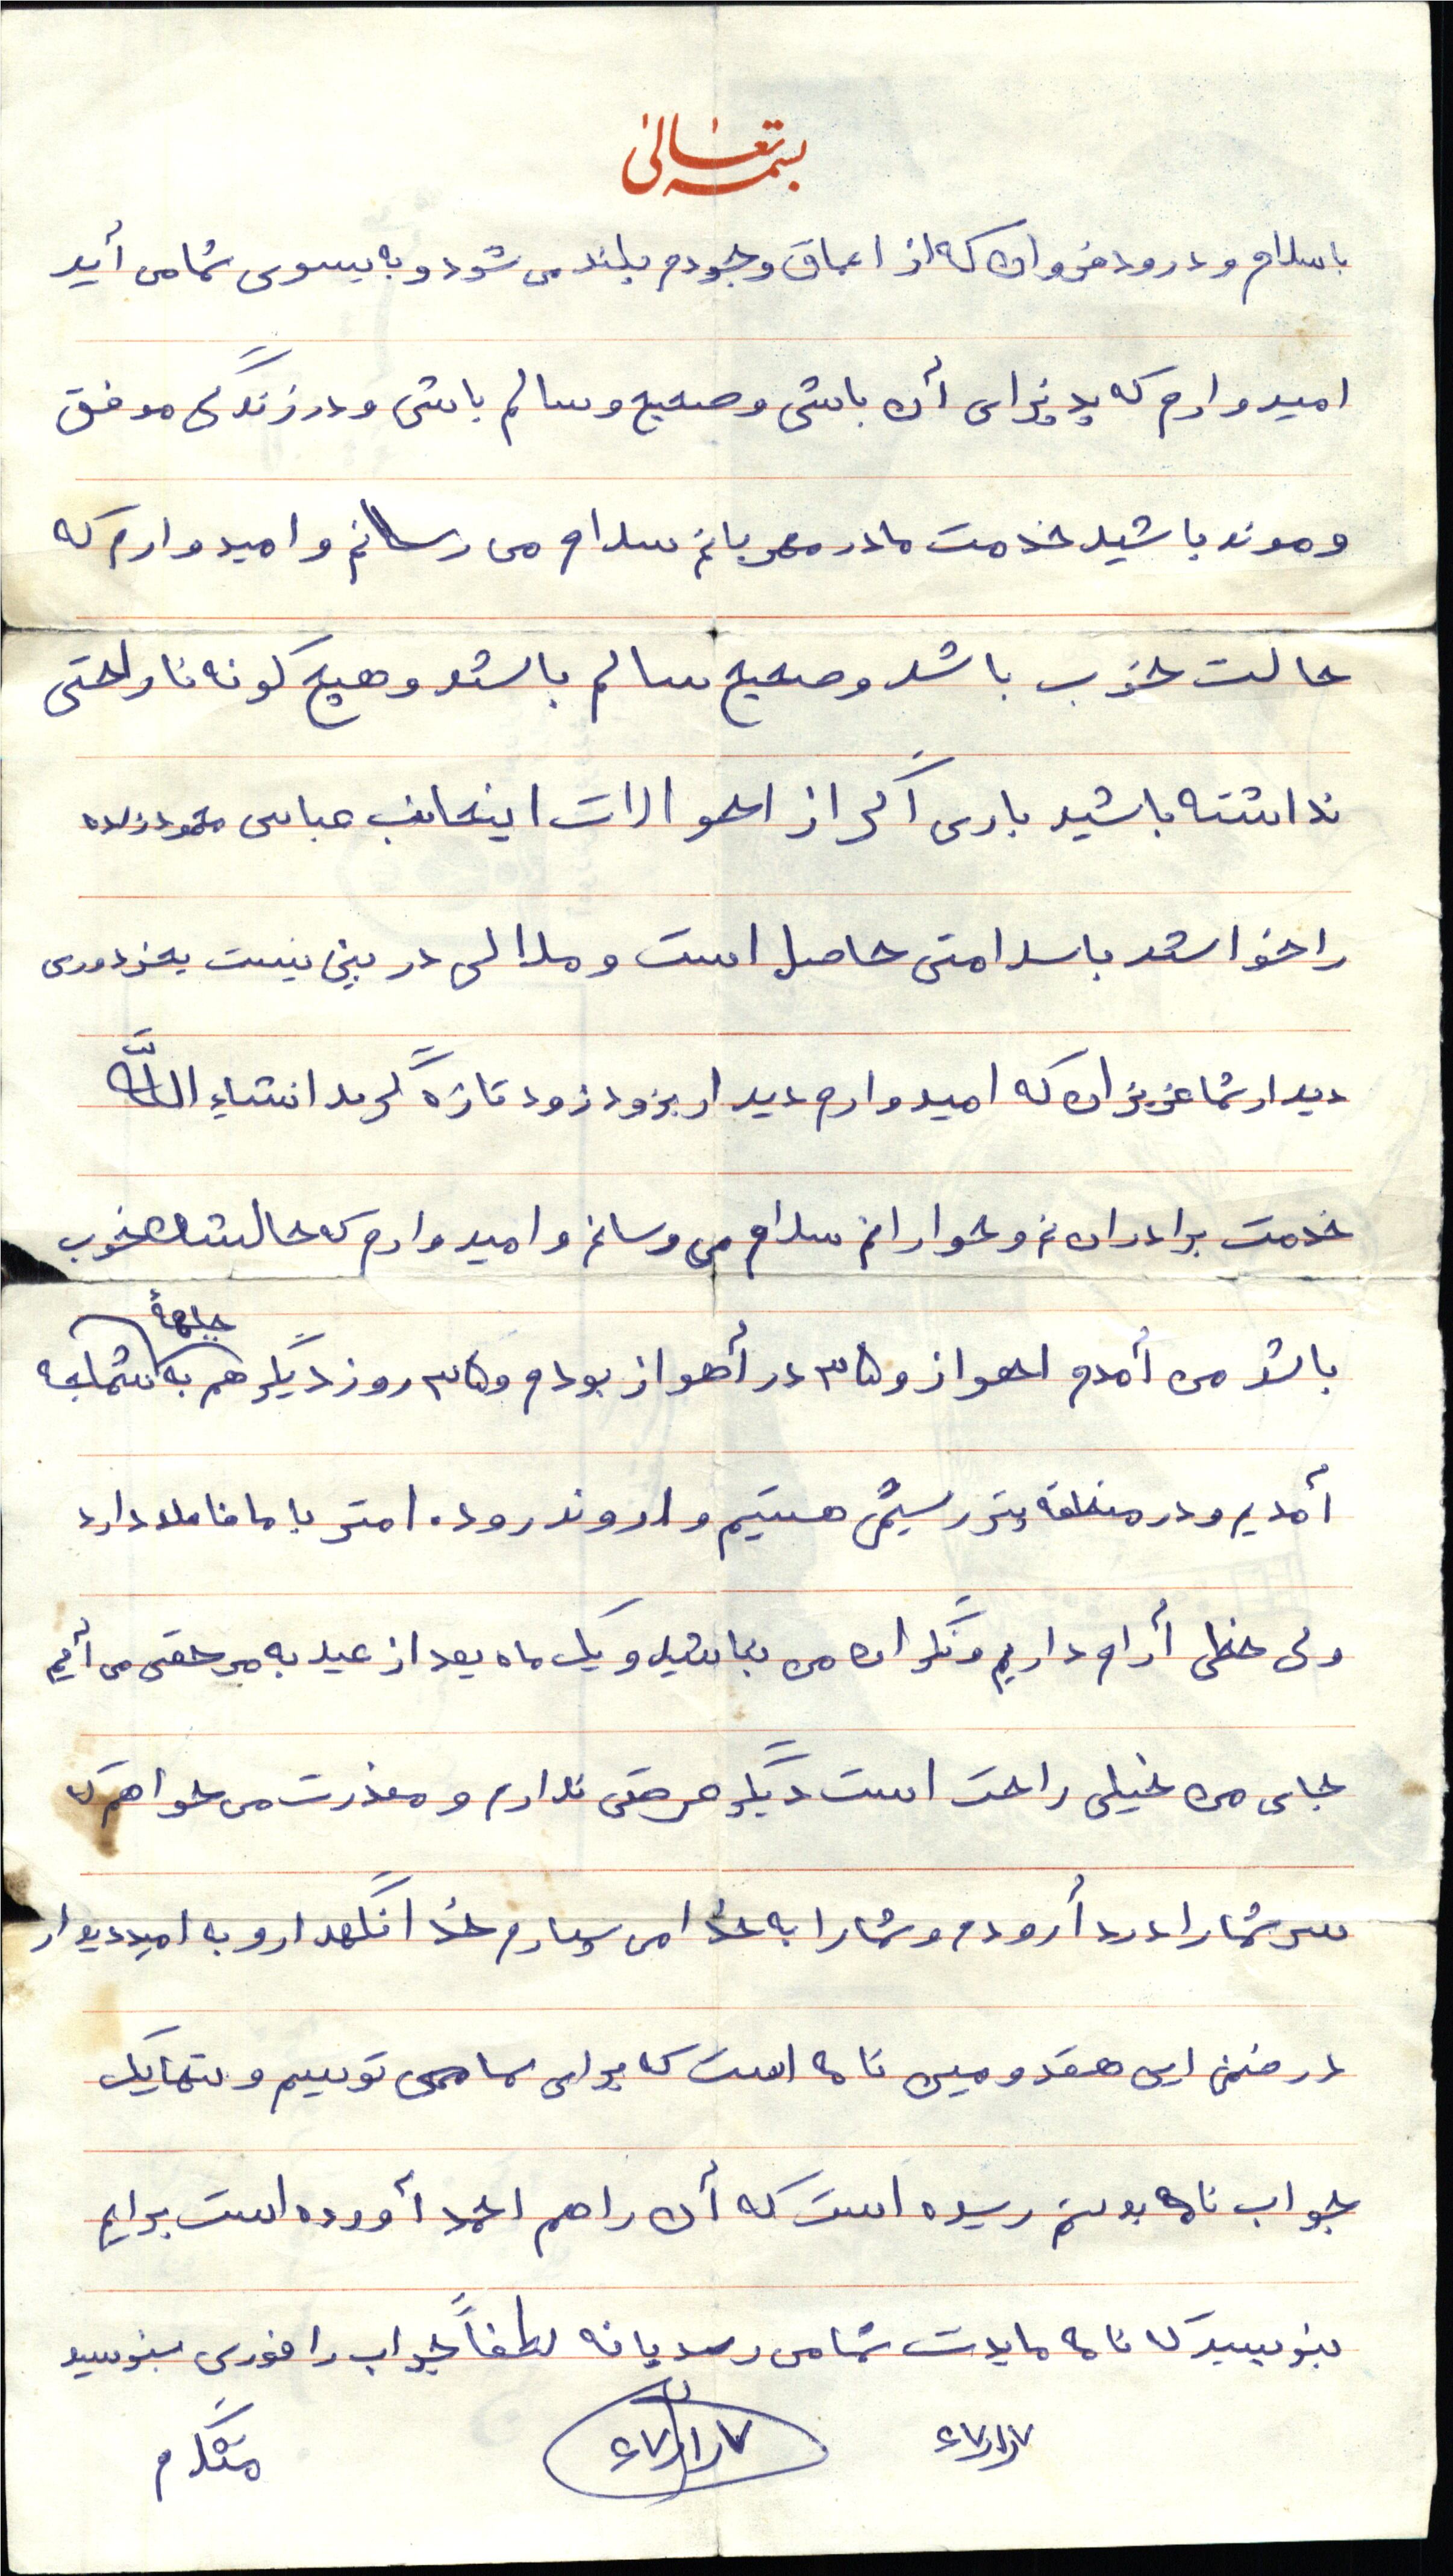 بسمه تعالی
با سلام و درود فروان که از اعماق وجودم بلند می شود و به بسوی شما می أید
امیدوارم که پذیرای أن باشی و صحیح و سالم باشی و در زندگی موفق
و موند باشید خدمت مادر مهربانم سلام می رسانم و امیدوارم که
حالت خوب باشد و صحیح سالم باشد و هیچ گونه ناراحتی
نداشته باشید باری اگر از احوالات اینجانب عباس محمودزاده
را خواشد با سلامتی حاصل است و ملالی در بین نیست بجز دوری
دیدار شما عزیزان که امیدوارم دیدار بزود زود تازه گرمد انشاءِ اللّه
خدمت برادرانم و خوارانم سلام می رسانم و امیدوارم که حالشان خوب
باشد من أمدم اهواز و ۳۵ در أهواز بودم و ۳۵ روز دیگر هم به جبهۀ شملچه
أمدیم و در منطقه پتروشیمی هستیم و اروند رود ۱۰ متر با ما فاصله دارد
ولی خطی أرام داریم و نگران من نباشید و یک ماه بعد از عید به مرخصی می أئیم
جای من خیلی راحت است دیگر عرضی ندارم و معذرت می خواهم که
سر شما را درد أرودم و شما را به خدا می سپارم خدا نگهدار و به امید دیدار
در ضمن این هفدومین نامه است که برای شما می نویسم و تنها یک
جواب نامه بدستم رسیده است که أن را هم احمد أورده است برایم
بنویسید که نامه ما بدست شما می رسد یا نه لطفاً جواب را فوری بنویسید
۶۷/۱/۷ ۶۷/۱/۷ متگرم